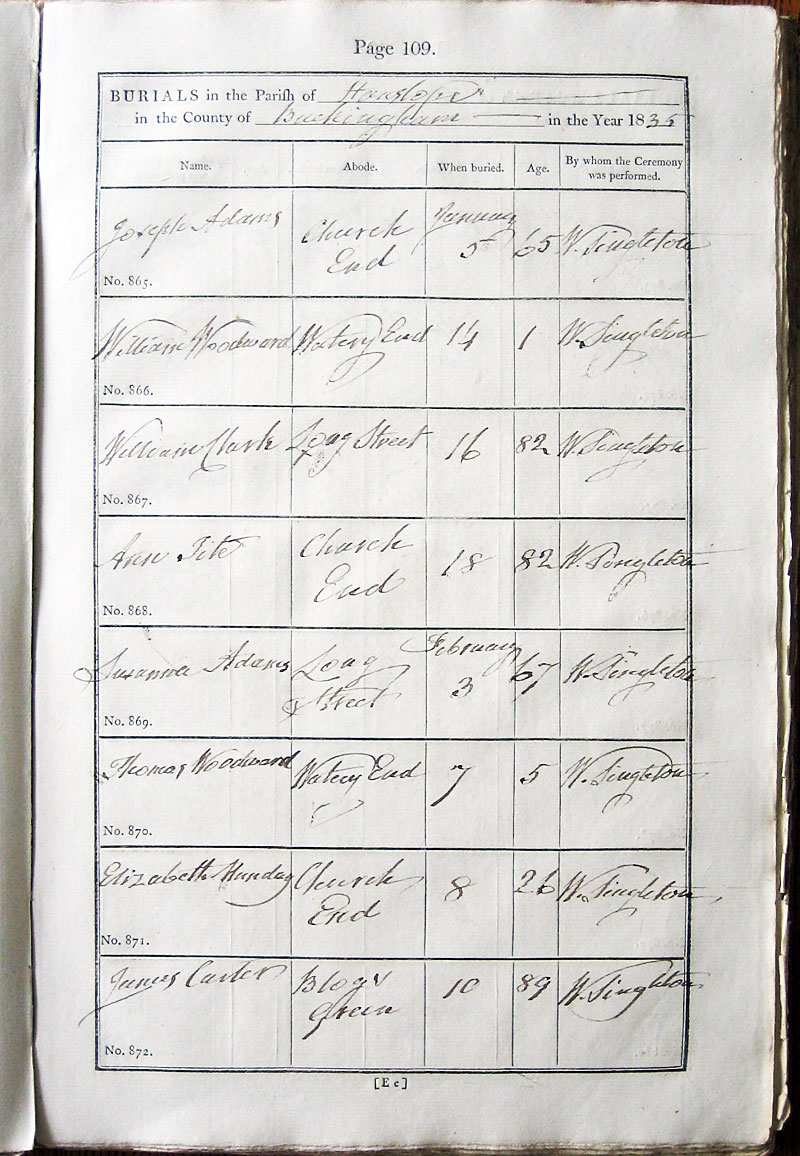 Page 109.
BURIALS in the Parish of Hanslope
in the County of Buckingham in the Year 1835
Name. Abode. When buried. Age. By whom the Ceremony was performed.
Joseph Adams Church End January 5 65 W. Singleton
No. 865.
William Woodward Watery End 14 1 W. Singleton
No. 866.
William Clark Long Street 16 82 W. Singleton
No. 867.
Ann Tite Church End 18 82 W. Singleton
No. 868.
Susanna Adams Long Street February 3 67 W. Singleton
No. 869.
Thomas Woodward Watery End 7 5 W. Singleton
No. 870.
Elizabeth Munday Church End 8 26 W. Singleton
No. 871.
James Carter Green 10 89 W. Singleton
No. 872.
[E e]